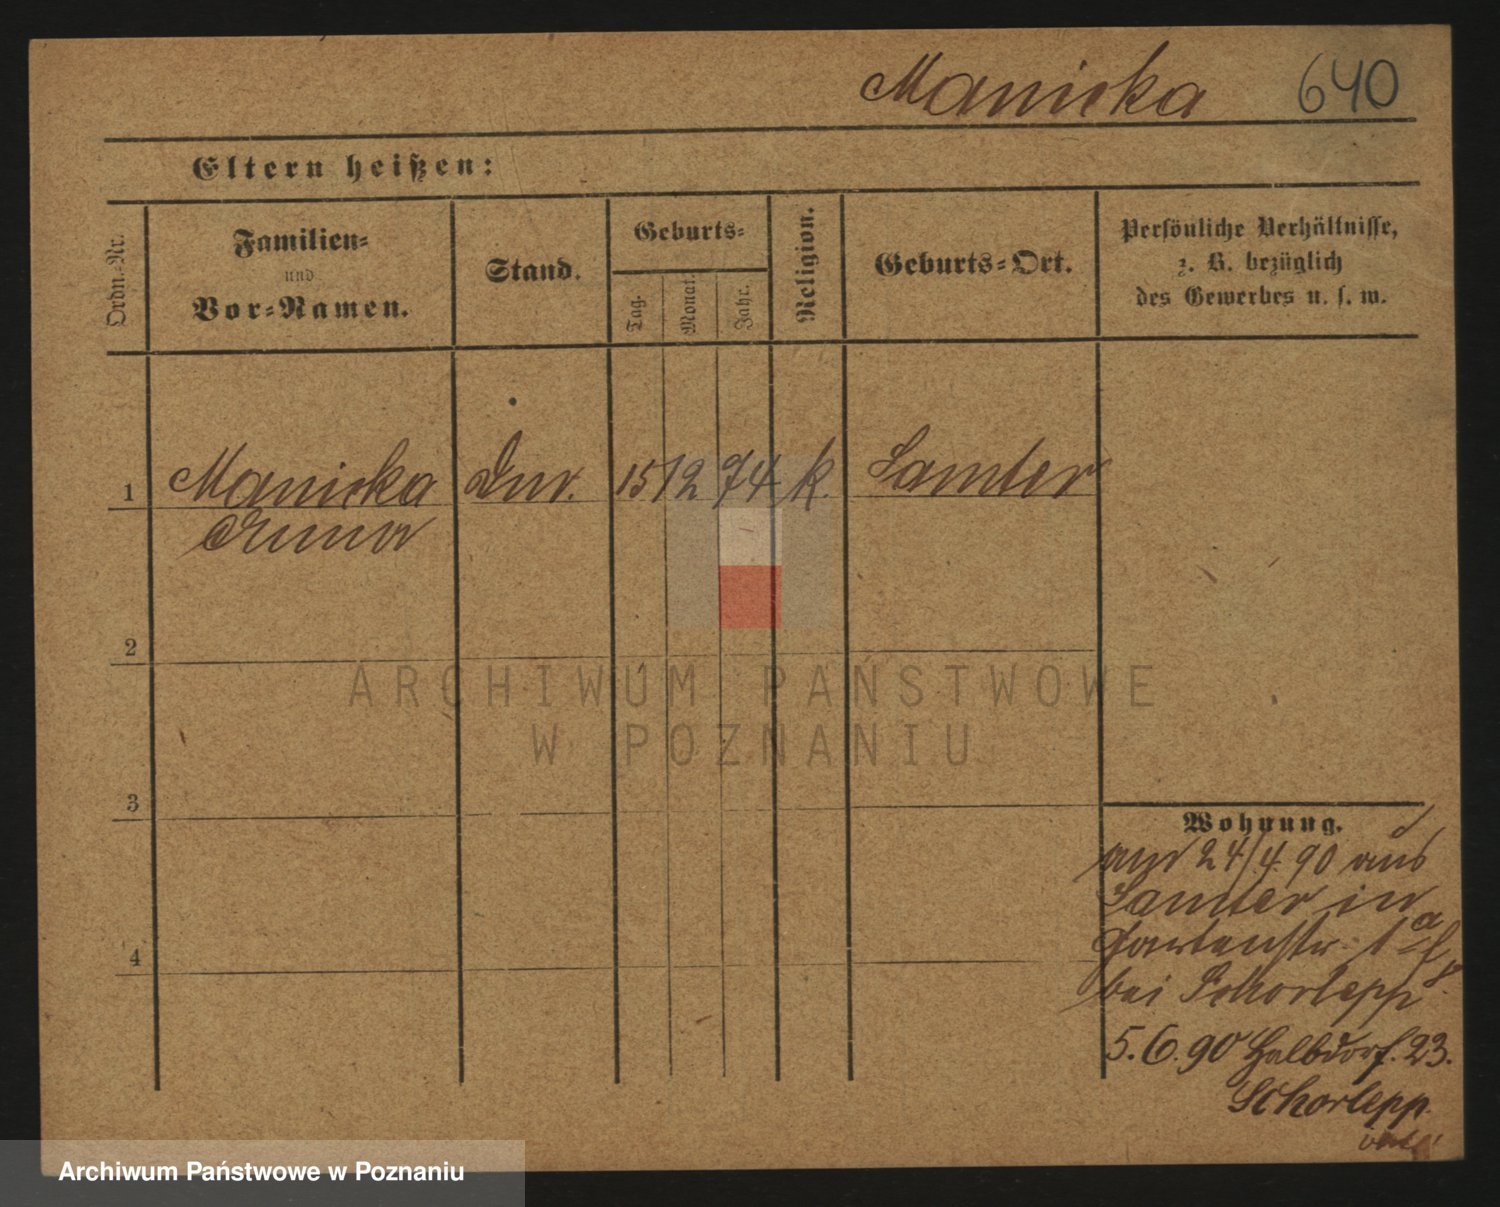 Manicka 640
Eltern heißen:
Ordn.-Nr.
Familien-
und
Vor-Namen.
Stand.
Geburts-
Tag.
Monat.
Jahr.
Religion.
Geburts-Ort.
Persönliche Verhältnisse,
z. B. bezüglich
des Gewerbes u. s. w.
1 Manicka 15 12 74 k. Samter
Anna
2
ARCHIWUM PAŃSTWOWE
W POZNANIU
3
Wohnung.
24/4. 90 aus
Samter in
Gartenstr. 1a
bei Schorlepp
4
5.6.90 Halbdorf. 23.
Schorlepp
Archiwum Państwowe w Poznaniu